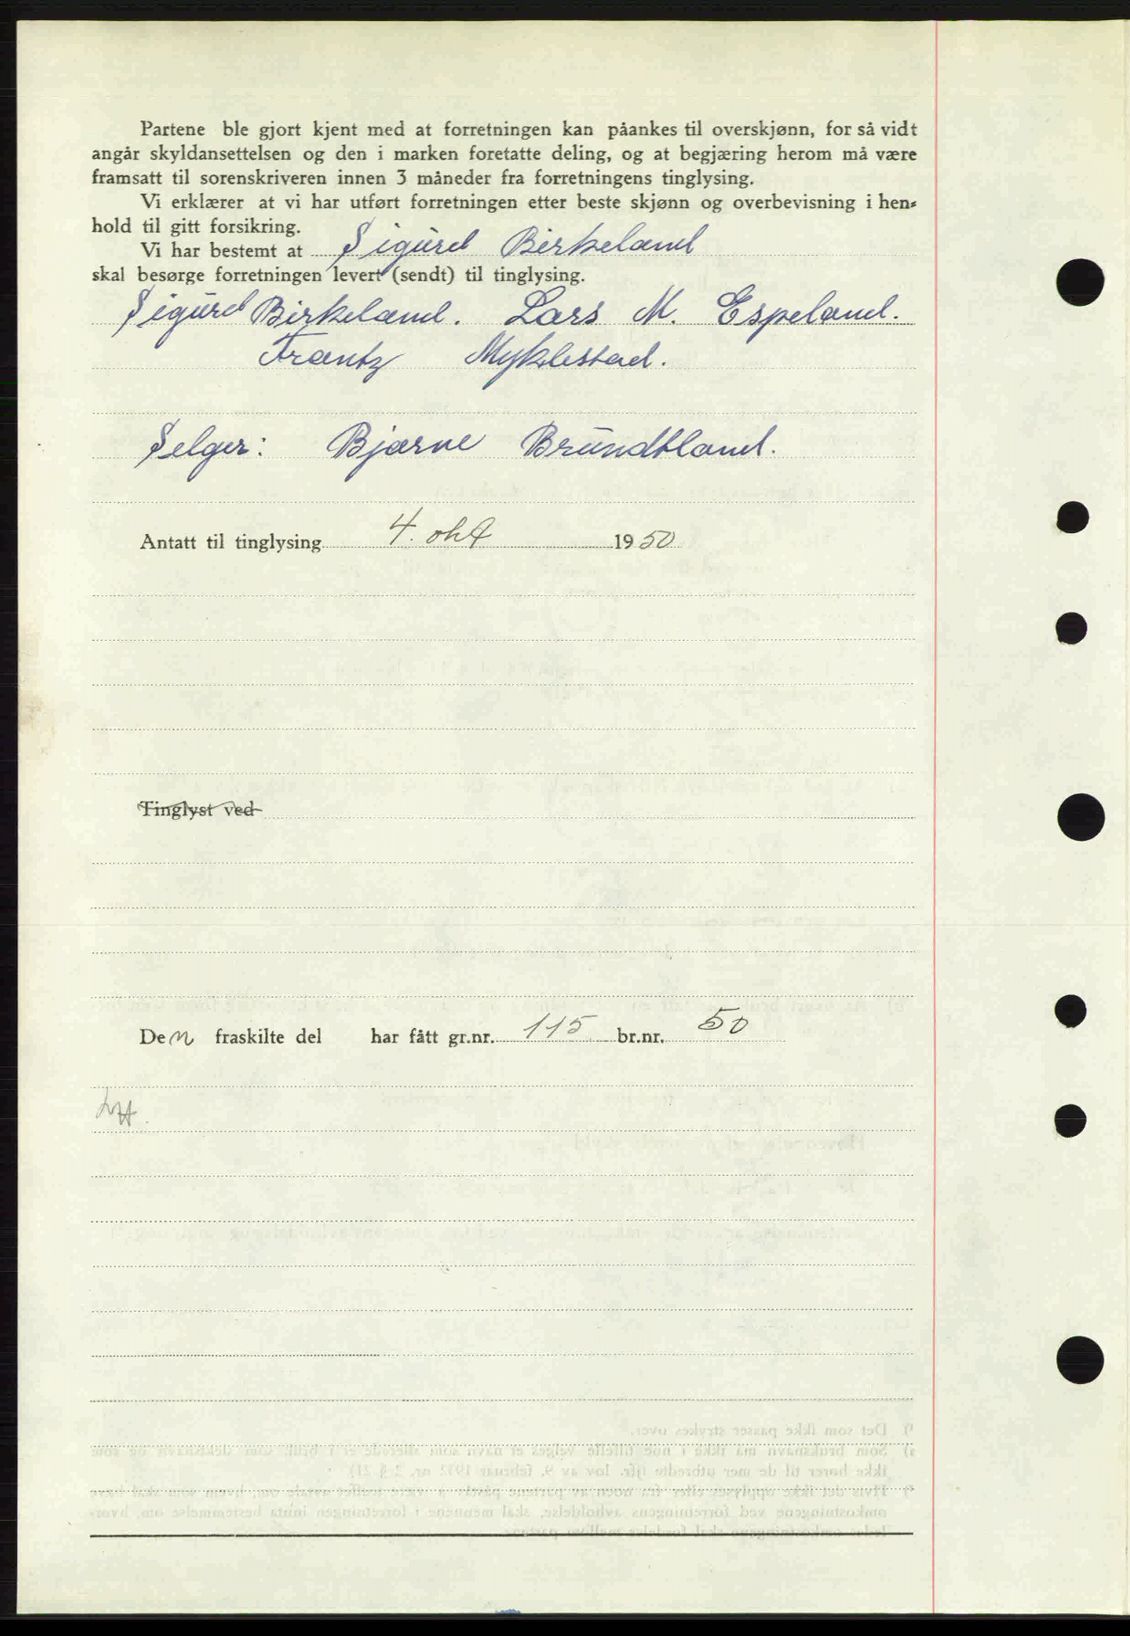 Partene ble gjort kjent med at forretningen kan påankes til overskjønn, for så vidt
angår skyldansettelsen og den i marken foretatte deling, og at begjæring herom må være
framsatt til sorenskriveren innen 3 måneder fra forretningens tinglysing.
Vi erklærer at vi har utført forretningen etter beste skjønn og overbevisning i hen-
hold til gitt forsikring.
Vi har bestemt at Sigurd Birkeland
skal besørge forretningen levert (sendt) til tinglysing.
Sigurd Birkeland. Lars M. Espeland.
Frantz Myklestad.
Selger: Bjarne Brundtland.
Antatt til tinglysing 4. okt 1950
Tinglyst ved
Den fraskilte del har fått gr.nr. 115 br.nr. 50